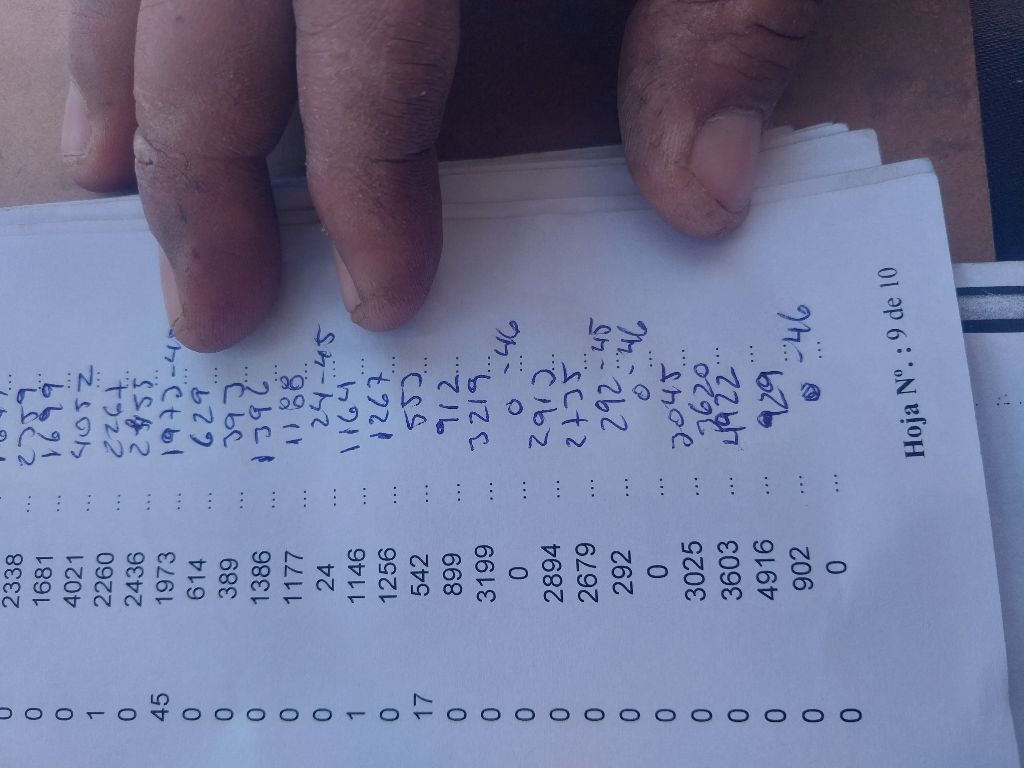 0 2338 ... 2359 ...
0 1681 ... 1699 ...
0 4021 ... 4052 ...
1 2260 ... 2267 ...
0 2436 ... 2455 ...
45 1973 ... 1973 -4
0 614 ... 629 ...
0 389 ... 393 ...
0 1386 ... 1392 ...
0 1177 ... 1188 ...
0 24 ... 24 -45
1 1146 ... 1164 ...
0 1256 ... 1267 ...
17 542 ... 553 ...
0 899 ... 912 ...
0 3199 ... 3219 ...
0 0 ... 0 -46
0 2894 ... 2913 ...
0 2679 ... 2735 ...
0 292 ... 292 -45
0 0 ... 0 -46
0 3025 ... 3045 ...
0 3603 ... 3620 ...
0 4916 ... 4922 ...
0 902 ... 929 ...
0 0 ... 0 -46
Hoja Nº. : 9 de 10